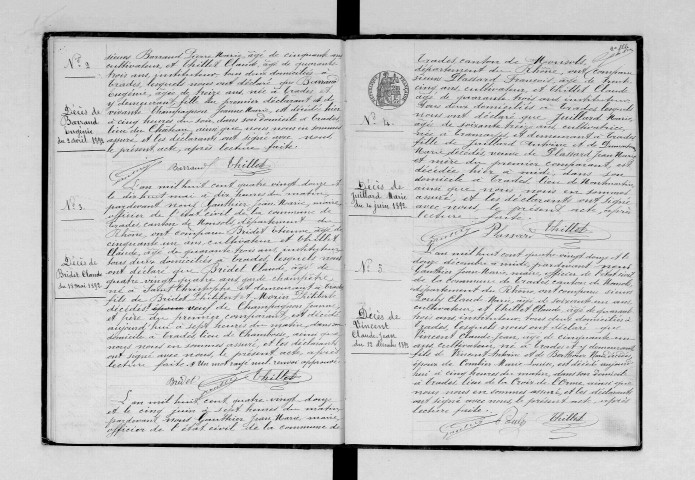 N° 2
Décès de
Barraud
Eugénie
du 2 avril 1892
sieurs Barraud Pierre Marie, âgé de cinquante ans
cultivateur, et Thillet Claude, âgé de quarante
trois ans, instituteur tous deux domiciliés à
Trades, lesquels nous ont déclaré que Barraud
Eugénie, âgée de treize ans née à Trades et
y demeurant, fille du premier déclarant et de
vivante Champagnon Jeanne Marie, est décédée hier
à cinq heures du soir, dans son domicile à Trades,
lieu du Château, ainsi que nous nous en sommes
assuré et les déclarants ont signé avec nous
le présent acte, après lecture faite.
Barraud Thillet
N° 3.
Décès de
Bridet Claude
du 18 mai 1892
L'an mil huit cent quatre vingt douze et
le dix huit mai à dix heures du matin
pardevant nous Gauthier Jean Marie, maire
officier de l'état civil de la commune de
Trades canton de Monsols département du
Rhône, ont comparu Bridet Etienne âgé de
cinquante un ans, cultivateur et Thillet
Claude, âgé de quarante trois ans, instituteur
tous deux domiciliés à Trades, lesquels nous
ont déclaré que Bridet Claude, âgé de
quatre vingt quatre ans garde champêtre
né à Saint Christophe et demeurant à Trades
fils de Bridet Philibert et Morier Philiberte
décédés veuf de Champagnon Jeanne
et père du premier comparant, est décédé
aujourd'hui à sept heures du matin, dans son
domicile à Trades lieu de Chambosse, ainsi que
nous nous en sommes assuré, et les déclarants
ont signé avec nous le présent acte, après
lecture faite. Un mot rayé nul, renvoi approuvé
Bridet Gauthier Thillet
L'an mil huit cent quatre vingt douze
et le cinq juin à sept heures du matin
pardevant nous Gauthier Jean Marie, maire,
officier de l'état civil de la commune de
N° 4.
Décès de
Juillard Marie
du 4 juin 1892
Trades canton de Monsols
département du Rhône, ont comparu
sieurs Plassard François, âgé de trente
cinq ans cultivateur et Thillet Claude
âgé de quarante trois ans instituteur
tous deux domiciliés à Trades, lesquels
nous ont déclaré que Juillard Marie
âgée de soixante treize ans cultivatrice,
née à Tramayes et demeurant à Trades
fille de Juillard Antoine et de
Marie décédés veuve de Plassard Jean Marie
et mère du premier comparant, est
décédée hier à midi, dans son
domicile à Trades, lieu de
ainsi que nous nous en sommes
assuré, et les déclarants ont signé
avec nous le présent acte, après
lecture faite.
Gauthier Plassard Thillet
N° 5
Décès de
Vincent
Claude Jean
du 12 décembre 1892
L'an mil huit cent quatre vingt douze et le
douze décembre à midi pardevant nous
Gauthier Jean Marie, maire, officier de l'état civil
de la commune de Trades canton de Monsols,
département du Rhône, ont comparu sieurs
Claude Marie, âgé de soixante un ans
cultivateur, et Thillet Claude, âgé de quarante
trois ans, instituteur, tous deux domiciliés à
Trades, lesquels nous ont déclaré que
Vincent Claude Jean, âgé de cinquante
ans cultivateur, né à Trades et y demeurant,
fils de Vincent Antoine et de décédés,
époux de Marie Louise, est décédé aujourd'hui
à cinq heures du matin, dans son domicile
à Trades lieu de la Croix de l'Orme, ainsi que
nous nous en sommes assuré, et les déclarants
ont signé avec nous le présent acte après
lecture faite.
Gauthier Thillet